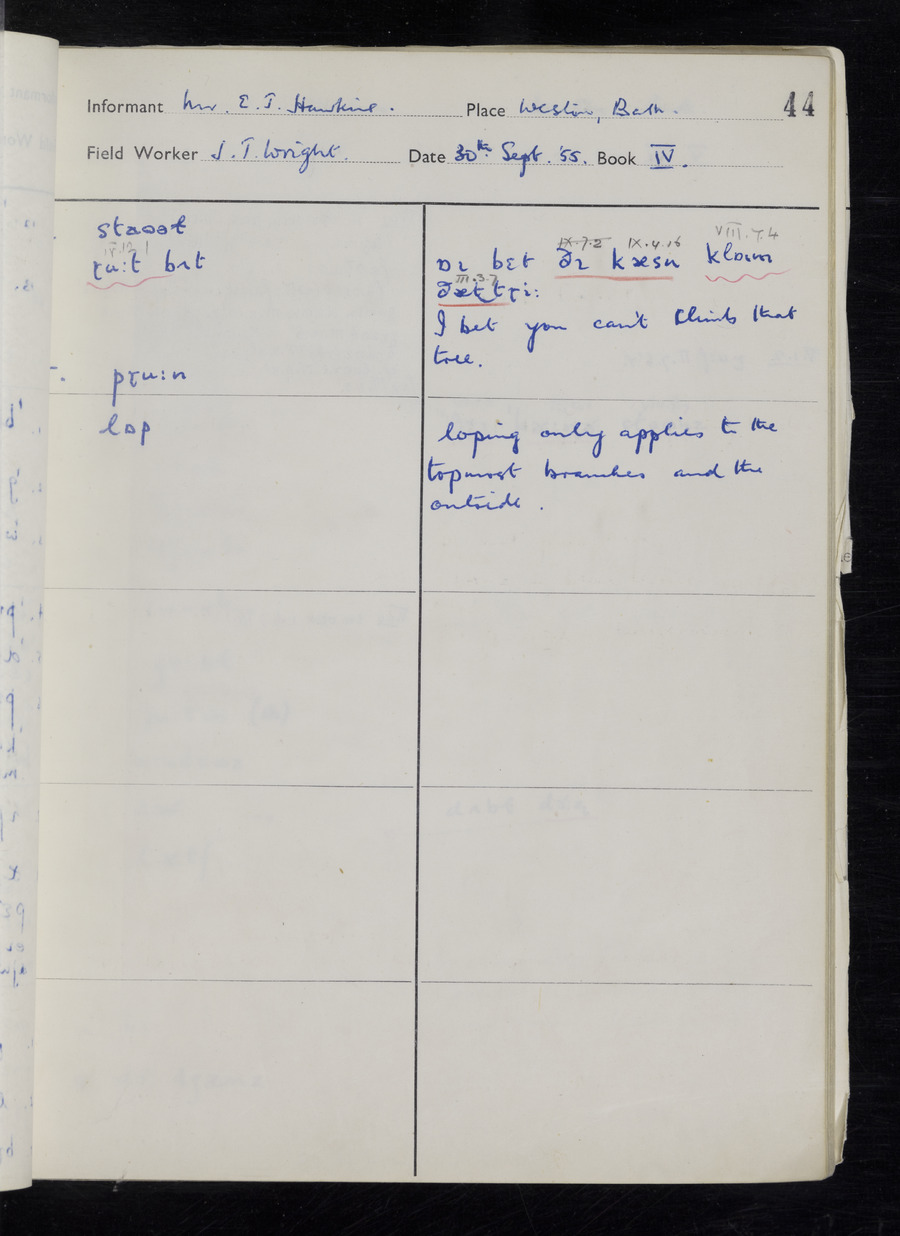 Informant Mr. E. J. Hawkins. Place Weston, Bath. 44
Field Worker J. T. Wright. Date 30th Sept. 55. Book IV.
staʊət
IV.12.1
ɽuːt bɪt
pɽuːn
lɒp
IX.7.2 IX.4.16 VIII.7.4
ɒɪ bɛt ðɪ kæsn klaɪm
III.3.7
ðæt tɽiː
I bet you can't climb that
tree.
loping only applies to the
topmost branches and the
outside.